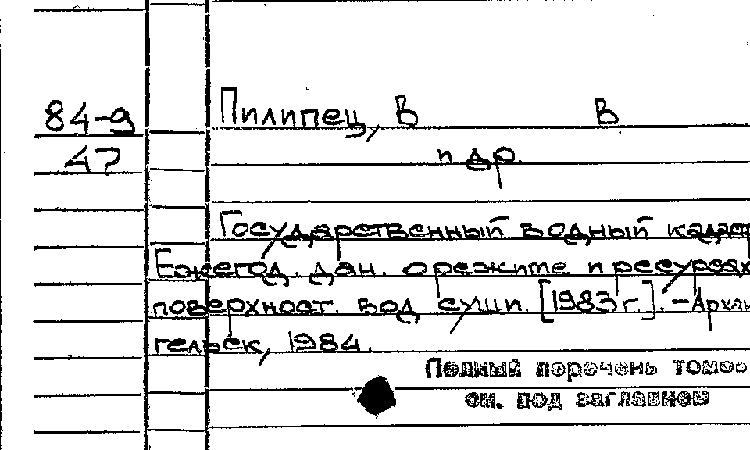 84-9 Пилипец, В В
47 и др.
Государственный водный кадаст
Ежегод. дан. о режиме и ресурсах
поверхност. вод суши. [1983 г.]. - Архан
гельск, 1984.
Полный перечень томов
см. под заглавием